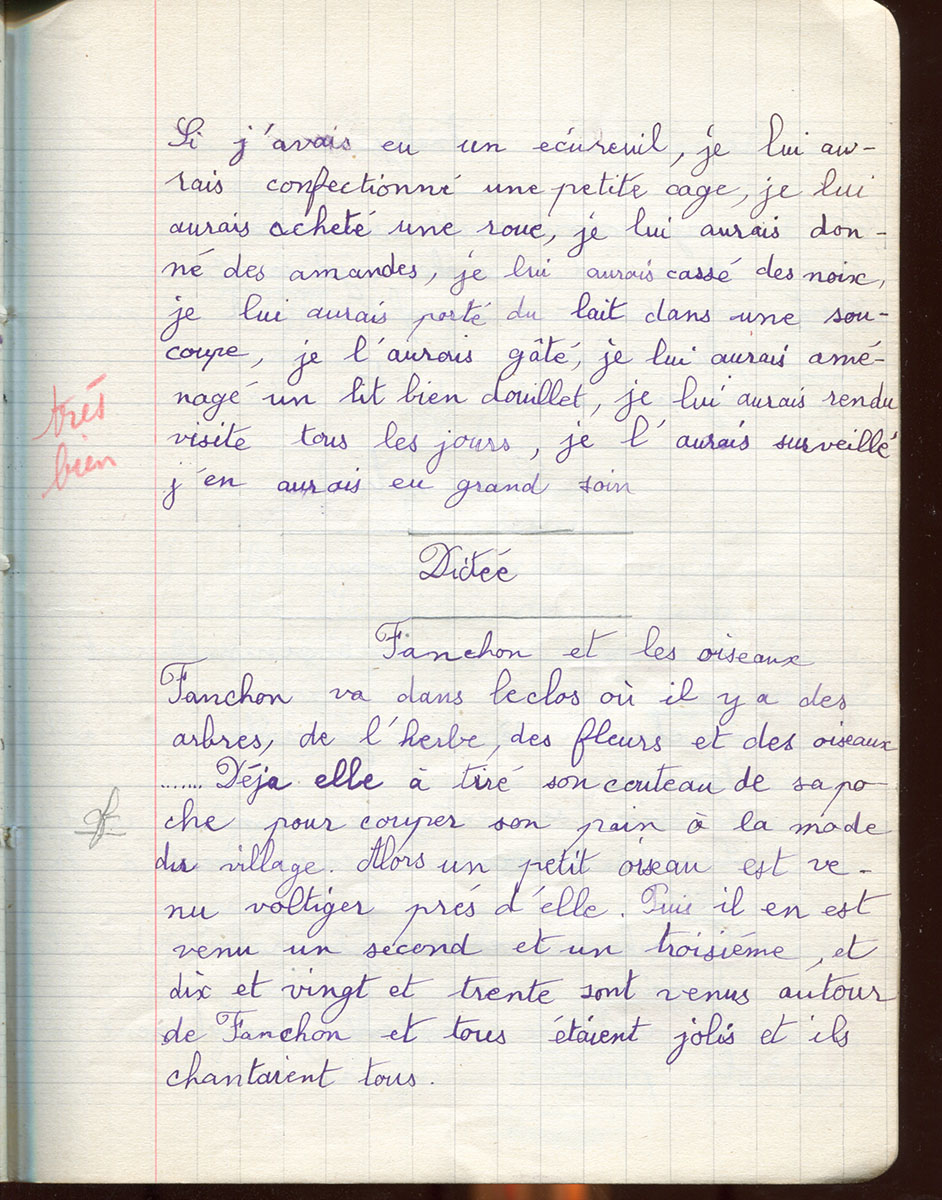 Si j'avais eu un écureuil, je lui au-
rais confectionné une petite cage, je lui
aurais acheté une roue, je lui aurais don-
né des amandes, je lui aurais cassé des noix,
je lui aurais porté du lait dans une sou-
coupe, je l'aurais gâté, je lui aurais amé-
nagé un lit bien douillet, je lui aurais rendu
visite tous les jours, je l'aurais surveillé
j'en aurais eu grand soin
très
bien
Dictée
Fanchon et les oiseaux
Fanchon va dans le clos où il y a des
arbres, de l'herbe, des fleurs et des oiseaux
........ Déja elle à tiré son couteau de sa po-
che pour couper son pain à la mode
du village. Alors un petit oiseau est ve-
nu voltiger prés d'elle. Puis il en est
venu un second et un troisiéme, et
dix et vingt et trente sont venus autour
de Fanchon et tous étaient jolis et ils
chantaient tous.